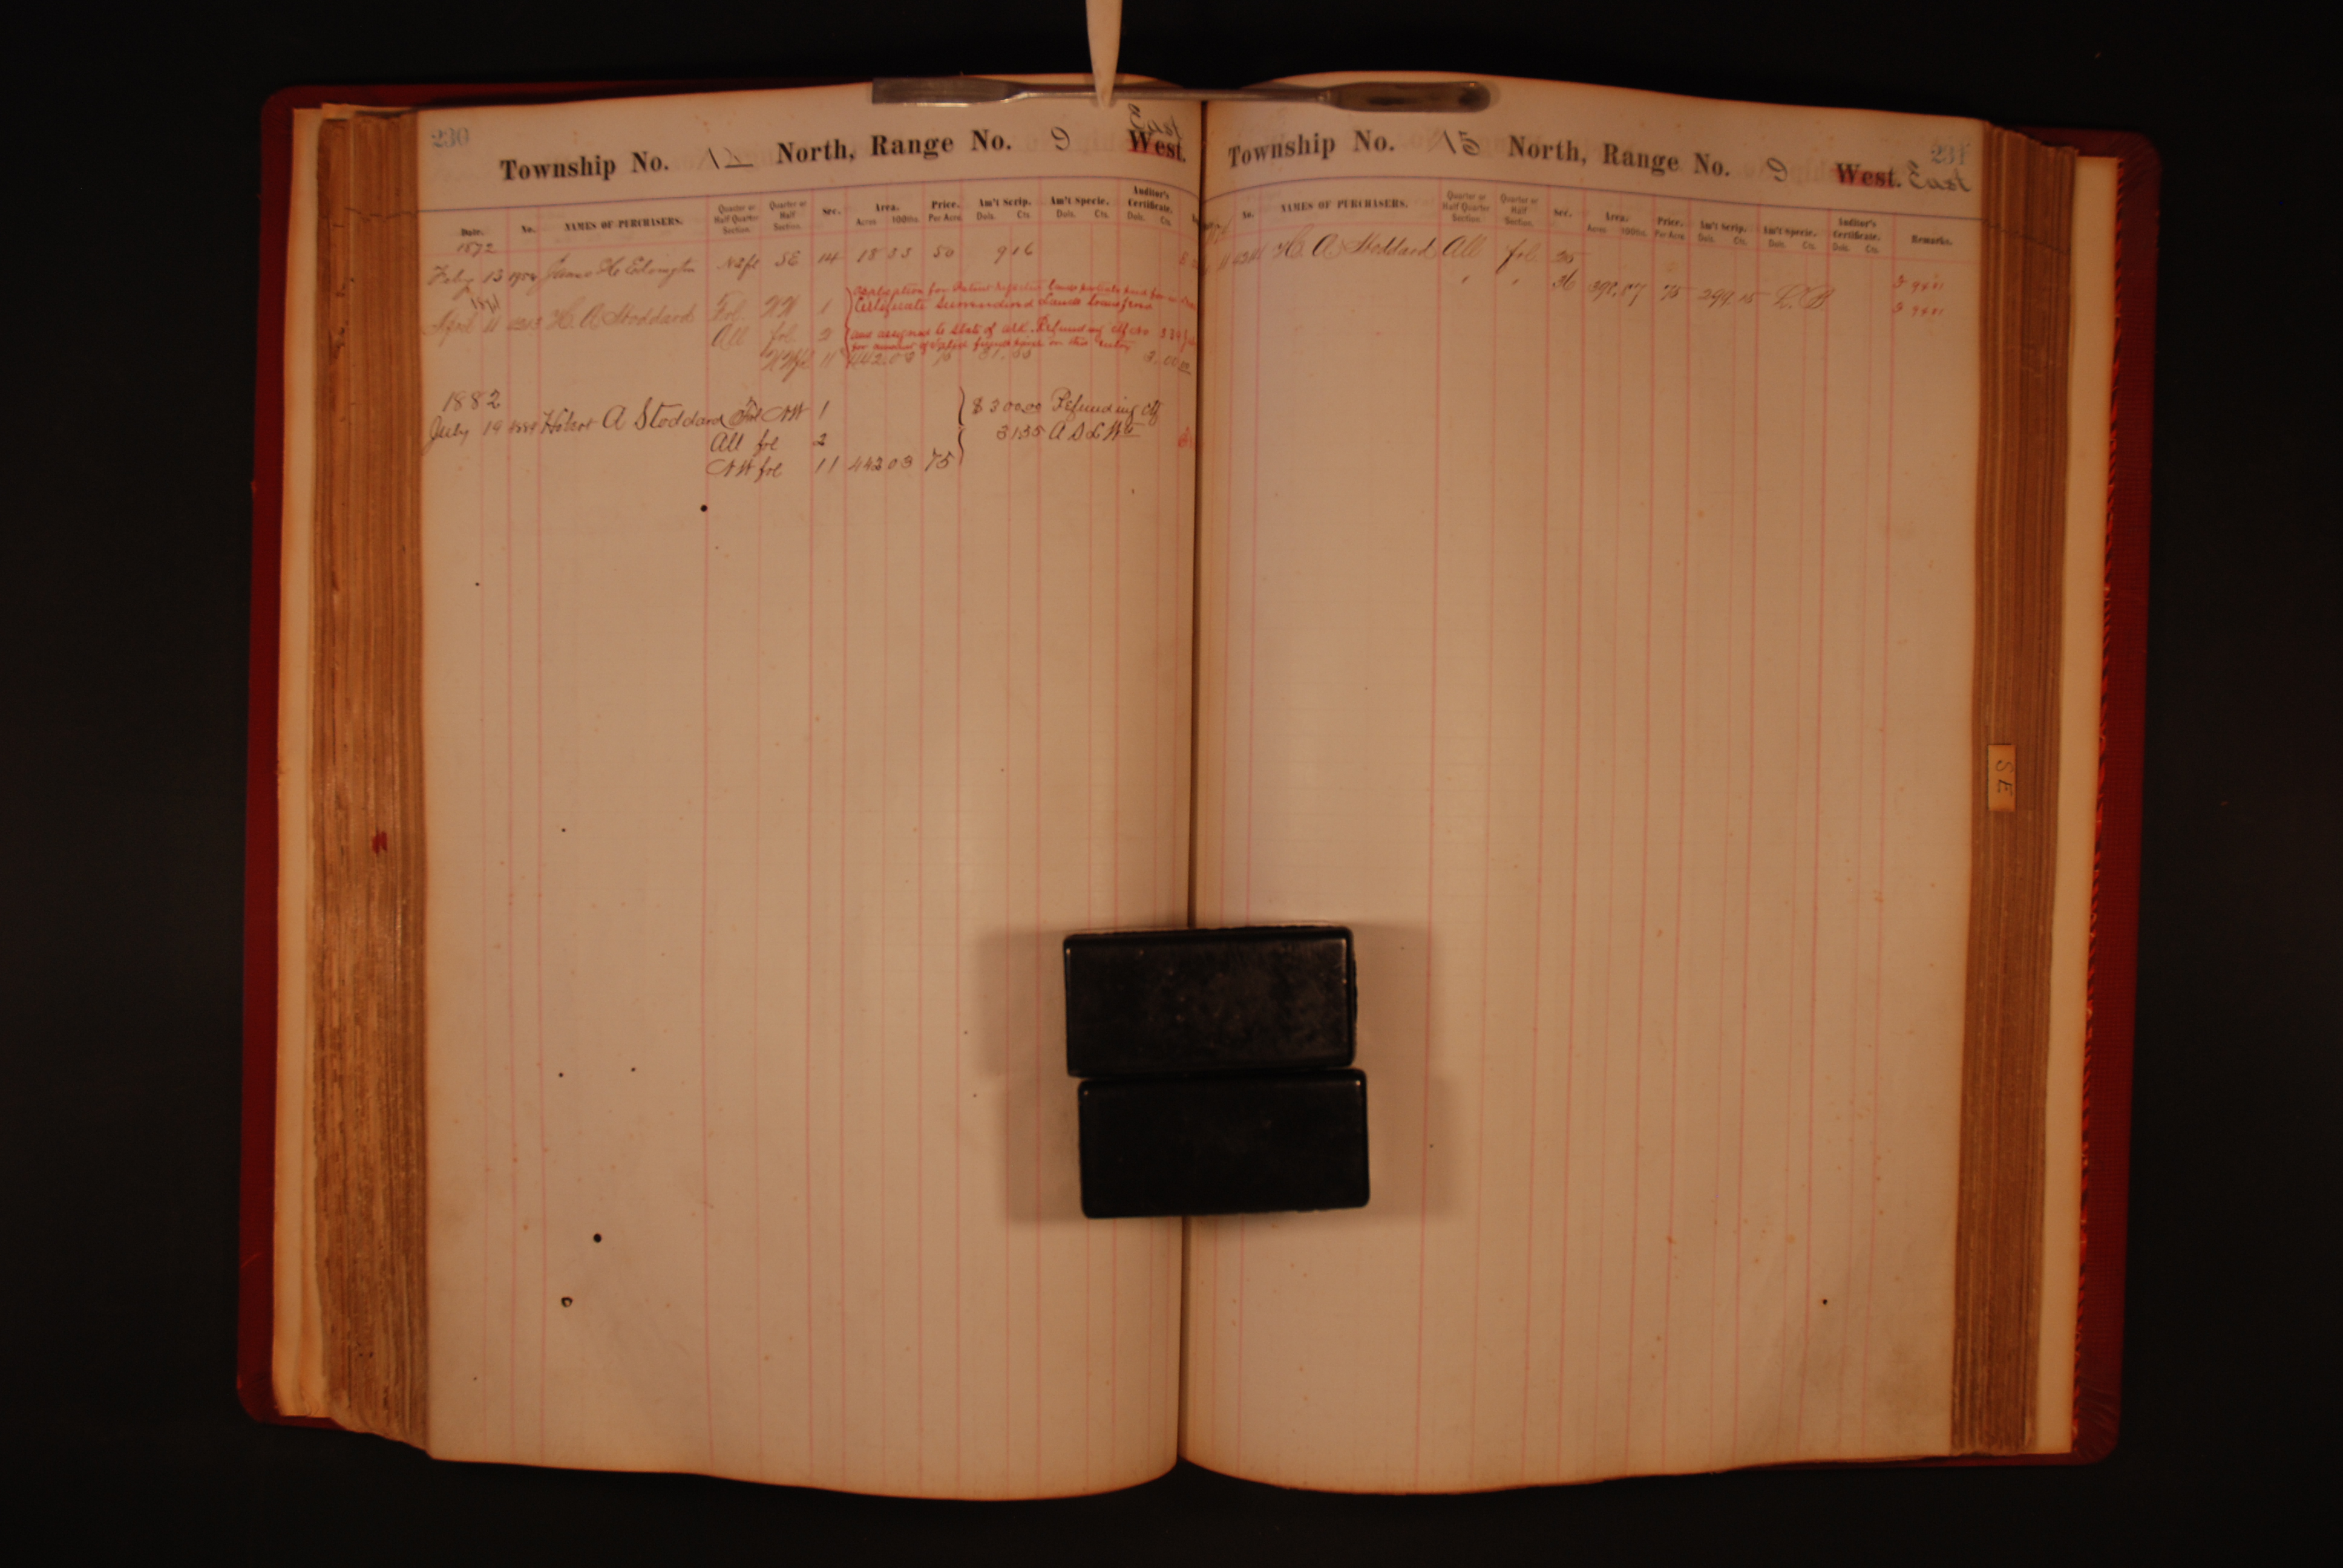 230
Township No. 12 North, Range No. 9 West. East
Date. No. NAMES OF PURCHASERS. Quarter or Half Quarter Section. Quarter or Half Section. Sec. Area. Acres 100ths. Price. Per Acre Am't Scrip. Dols. Cts. Am't Specie. Dols. Cts. Auditor's Certificate. Dols. Cts.
1872
Feby 13 1954 James H Edington SE 14 18 33 50 9 16
Application for Patent rejected
Certificate Surrendered
April 11 H. A. Stoddard Frl. NW 1
and assigned to State of Ark. Refunding
All frl 2
for amount of on this entry
11 442.03 75 31.35 3.00 00
1882
July 19 Hobert A Stoddard Frl NW 1 $ 300.00 Refunding ctf
All frl 2 31.35 A S L
NW frl 11 442 03 75
231
Township No. 15 North, Range No. 9 West. East
No. NAMES OF PURCHASERS. Quarter or Half Quarter Section. Quarter or Half Section. Sec. Area. Acres 100ths. Price. Per Acre Am't Scrip. Dols. Cts. Am't Specie. Dols. Cts. Auditor's Certificate. Dols. Cts. Remarks.
11 H. A Stoddard All frl 25
" " 36 75 299 15 L. B.
SE